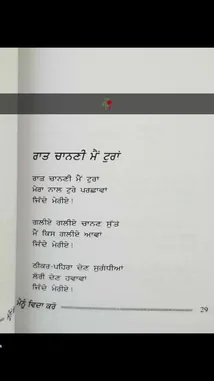 ਰਾਤ ਚਾਨਣੀ ਮੈਂ ਟੁਰਾਂ
ਰਾਤ ਚਾਨਣੀ ਮੈਂ ਟੁਰਾਂ
ਮੇਰਾ ਨਾਲ ਟੁਰੇ ਪਰਛਾਵਾਂ
ਜਿੰਦੇ ਮੇਰੀਏ !
ਗਲੀਏ ਗਲੀਏ ਚਾਨਣ ਸੁੱਤੇ
ਮੈਂ ਕਿਸ ਗਲੀਏ ਆਵਾਂ
ਜਿੰਦੇ ਮੇਰੀਏ !
ਠੀਕਰ-ਪਹਿਰਾ ਦੇਣ ਸੁਗੰਧੀਆਂ
ਲੋਰੀ ਦੇਣ ਹਵਾਵਾਂ
ਜਿੰਦੇ ਮੇਰੀਏ !
ਮੈਨੂੰ ਵਿਦਾ ਕਰੋ
29